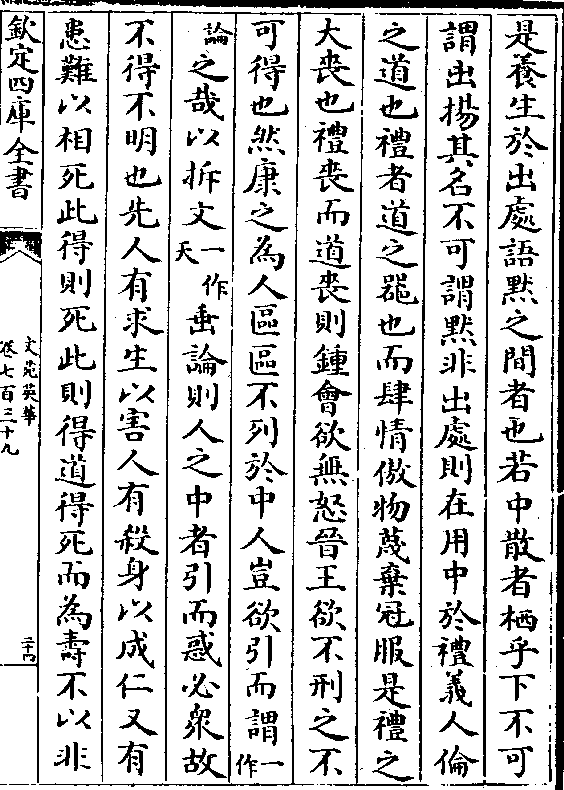 是養生於出處語黙之間者也若中散者栖乎下不可
謂出揚其名不可謂黙非出處則在用中於禮義人倫
之道也禮者道之器也而肆情傲物蔑棄冠服是禮之
大喪也禮喪而道喪則鍾會欲無怒晉王欲不刑之不
可得也然康之為人區區不列於中人豈欲引而謂一作
論之哉以拆文一作天垂論則人之中者引而惑必衆故
不得不明也先人有求生以害人有殺身以成仁又有
患難以相死此得則死此則得道得死而為壽不以非
欽定四庫全書
文苑英華
卷七百三十九
二十四